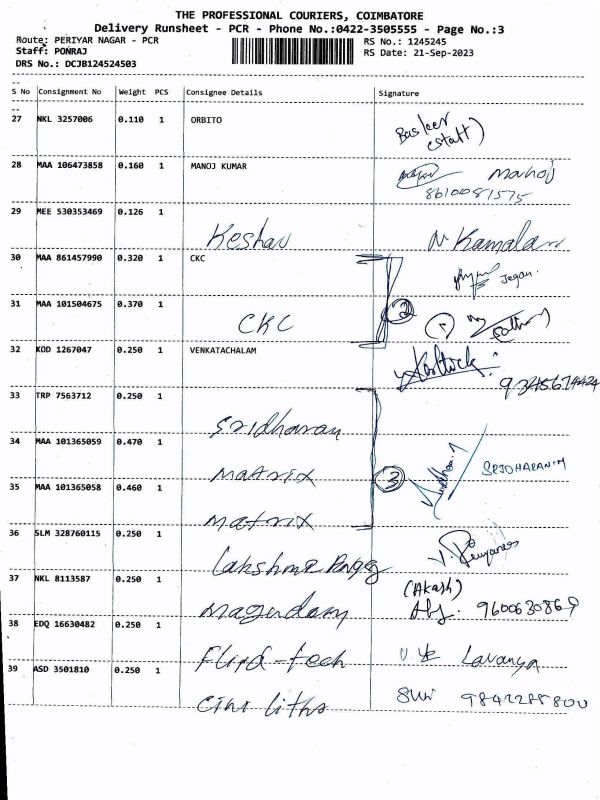 THE PROFESSIONAL COURIERS, COIMBATORE
Delivery Runsheet - PCR - Phone No.:0422-3505555 - Page No.:3
Route: PERIYAR NAGAR - PCR RS No.: 1245245
Staff: PONRAJ RS Date: 21-Sep-2023
DRS No.: DCJB124524503
S No Consignment No Weight PCS Consignee Details Signature
27 NKL 3257006 0.110 1 ORBITO Basker (staff)
28 MAA 106473858 0.160 1 MANOJ KUMAR Manoj
8610081575
29 MEE 530353469 0.126 1 Keshav N Kamalam
30 MAA 861457990 0.320 1 CKC Jegan.
31 MAA 101504675 0.370 1 CKC 2
32 KOD 1267047 0.250 1 VENKATACHALAM Karthick
33 TRP 7563712 0.250 1 Sridharan
34 MAA 101365059 0.470 1 Matrix 3 SRIDHARAN.M
35 MAA 101365058 0.460 1 Matrix
36 SLM 328760115 0.250 1 Lakshmi
37 NKL 8113587 0.250 1 Magudam (Akash)
38 EDQ 16630482 0.250 1 Fluid-tech Lavanya
39 ASD 3501810 0.250 1 Cini liths 9842288800